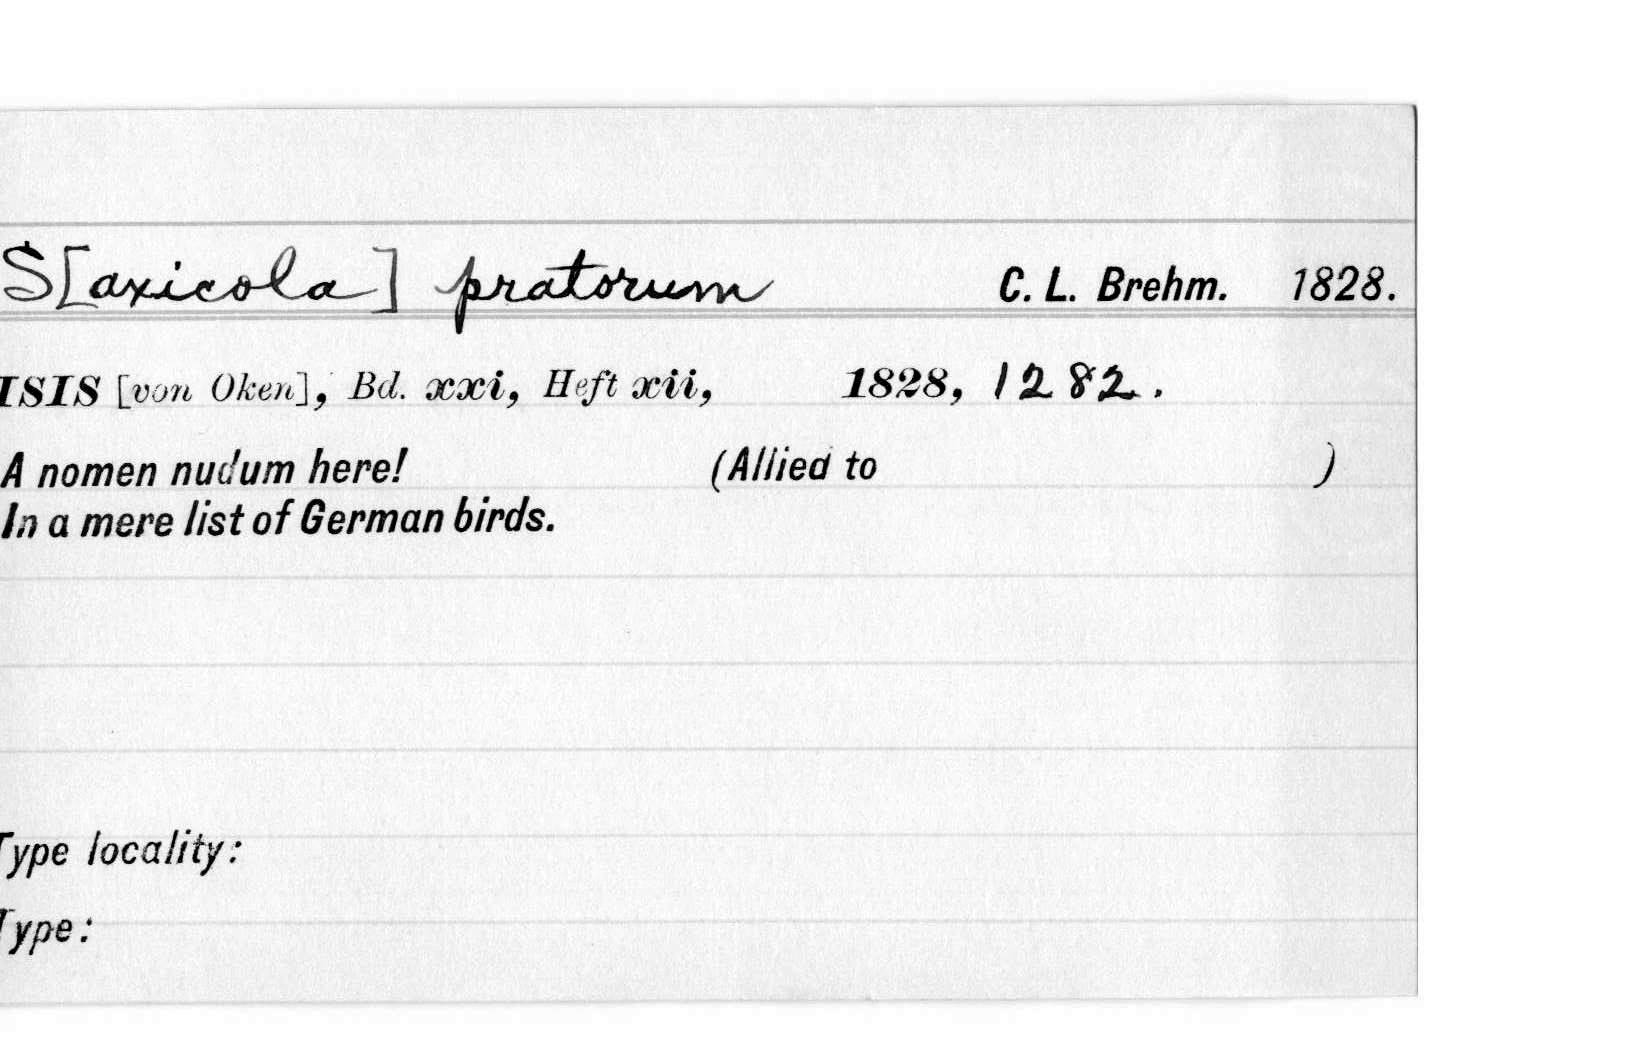 S[axicola] pratorum C. L. Brehm. 1828.
ISIS [von Oken], Bd. xxi, Heft xii, 1828, 1282.
A nomen nudum here! (Allied to )
In a mere list of German birds.
Type locality:
Type: